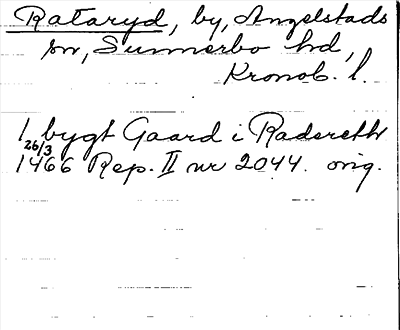 Rataryd, by, Angelstads
sn, Sunnerbo hd,
Kronob. l.
1 bygt Gaard i Raderethr
26/3
1466 Rep. II nr 2044. orig.